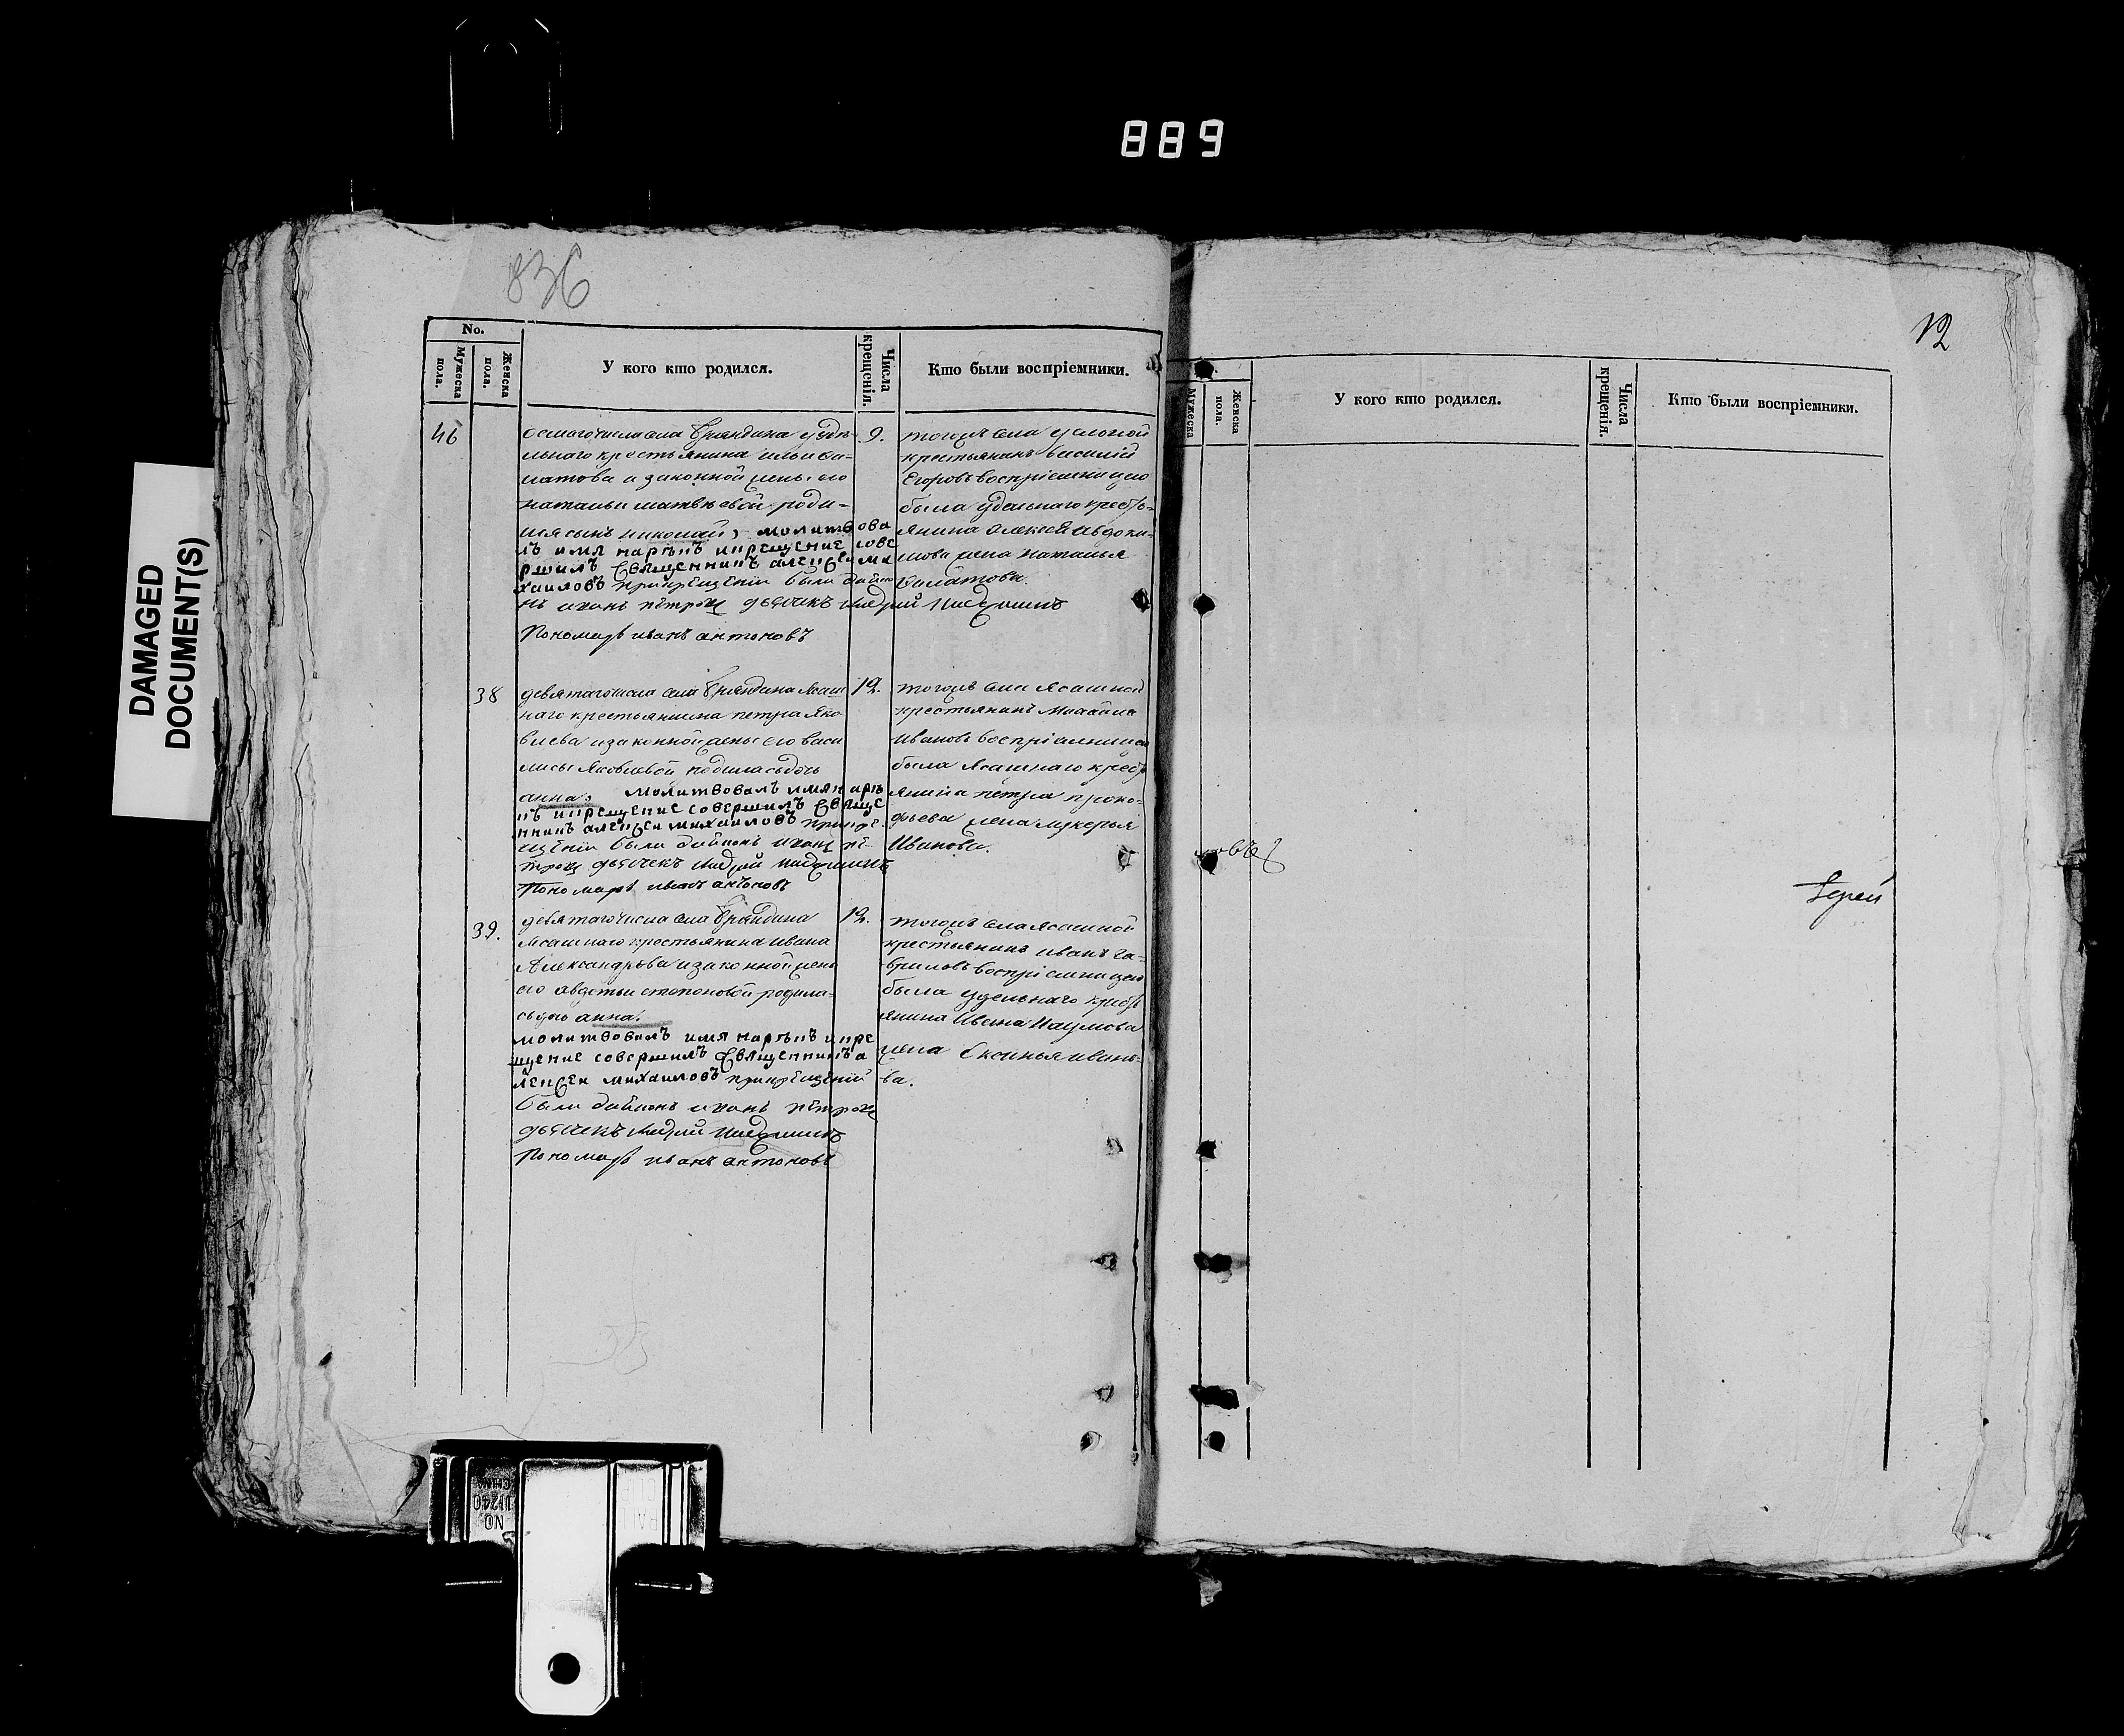 889
DAMAGED
DOCUMENT(S)
836
No.
Мужеска пола.
Женска пола.
У кого кто родился.
Числа крещенія.
Кто были воспріемники.
46
осмаго числа села Бряндина удѣ-
льнаго крестьянина ильи
и законной жены его
натальи матвѣевой роди-
лся сынъ николай, молитвова
лъ имя нарѣкъ икрещение сове
ршилъ священникъ алексеи ми
хаиловъ прикрещении были
иванъ петровъ дьячекъ
Пономарь иванъ антоновъ
9.
тогожъ села удельной
крестьянинъ василий
Егоровъ воспріемницею
была удельнаго кресть-
янина Алексея Авдоки-
мова жена Наталья
38
девятаго числа села Бряндина Ясаш
наго крестьянина петра Яко
влева изаконной жены его васи
лисы Яковлевой родилась дочь
анна, молитвовалъ имя нарѣ
къ икрещение совершилъ свяще
нникъ алексеи михаиловъ прикре
щении были иванъ пе-
тровъ дьячекъ
Пономарь иванъ антоновъ
12.
тогожъ села Ясашной
крестьянинъ Михайла
Ивановъ воспріемницею
была Ясашнаго кресть
янина петра проко-
фьева жена лукерья
Иванова.
39.
девятаго числа села Бряндина
Ясашнаго крестьянина Ивана
Александрова изаконной жены
его авдотьи степоновой родила-
сь дочь анна.
молитвовалъ имя нарѣкъ икре
щение совершилъ священникъ а
лексеи михаиловъ прикрещении
были иванъ петровъ
дьячекъ
Пономарь иванъ антоновъ
12.
тогожъ села Ясашной
крестьянинъ иванъ Га-
вриловъ воспріемницею
была удельнаго кресть
янина Ивана Наумова
жена Аксинья ивано-
ва.
12
Мужеска
Женска пола.
У кого кто родился.
Числа крещенія.
Кто были воспріемники.
Іерей
NO